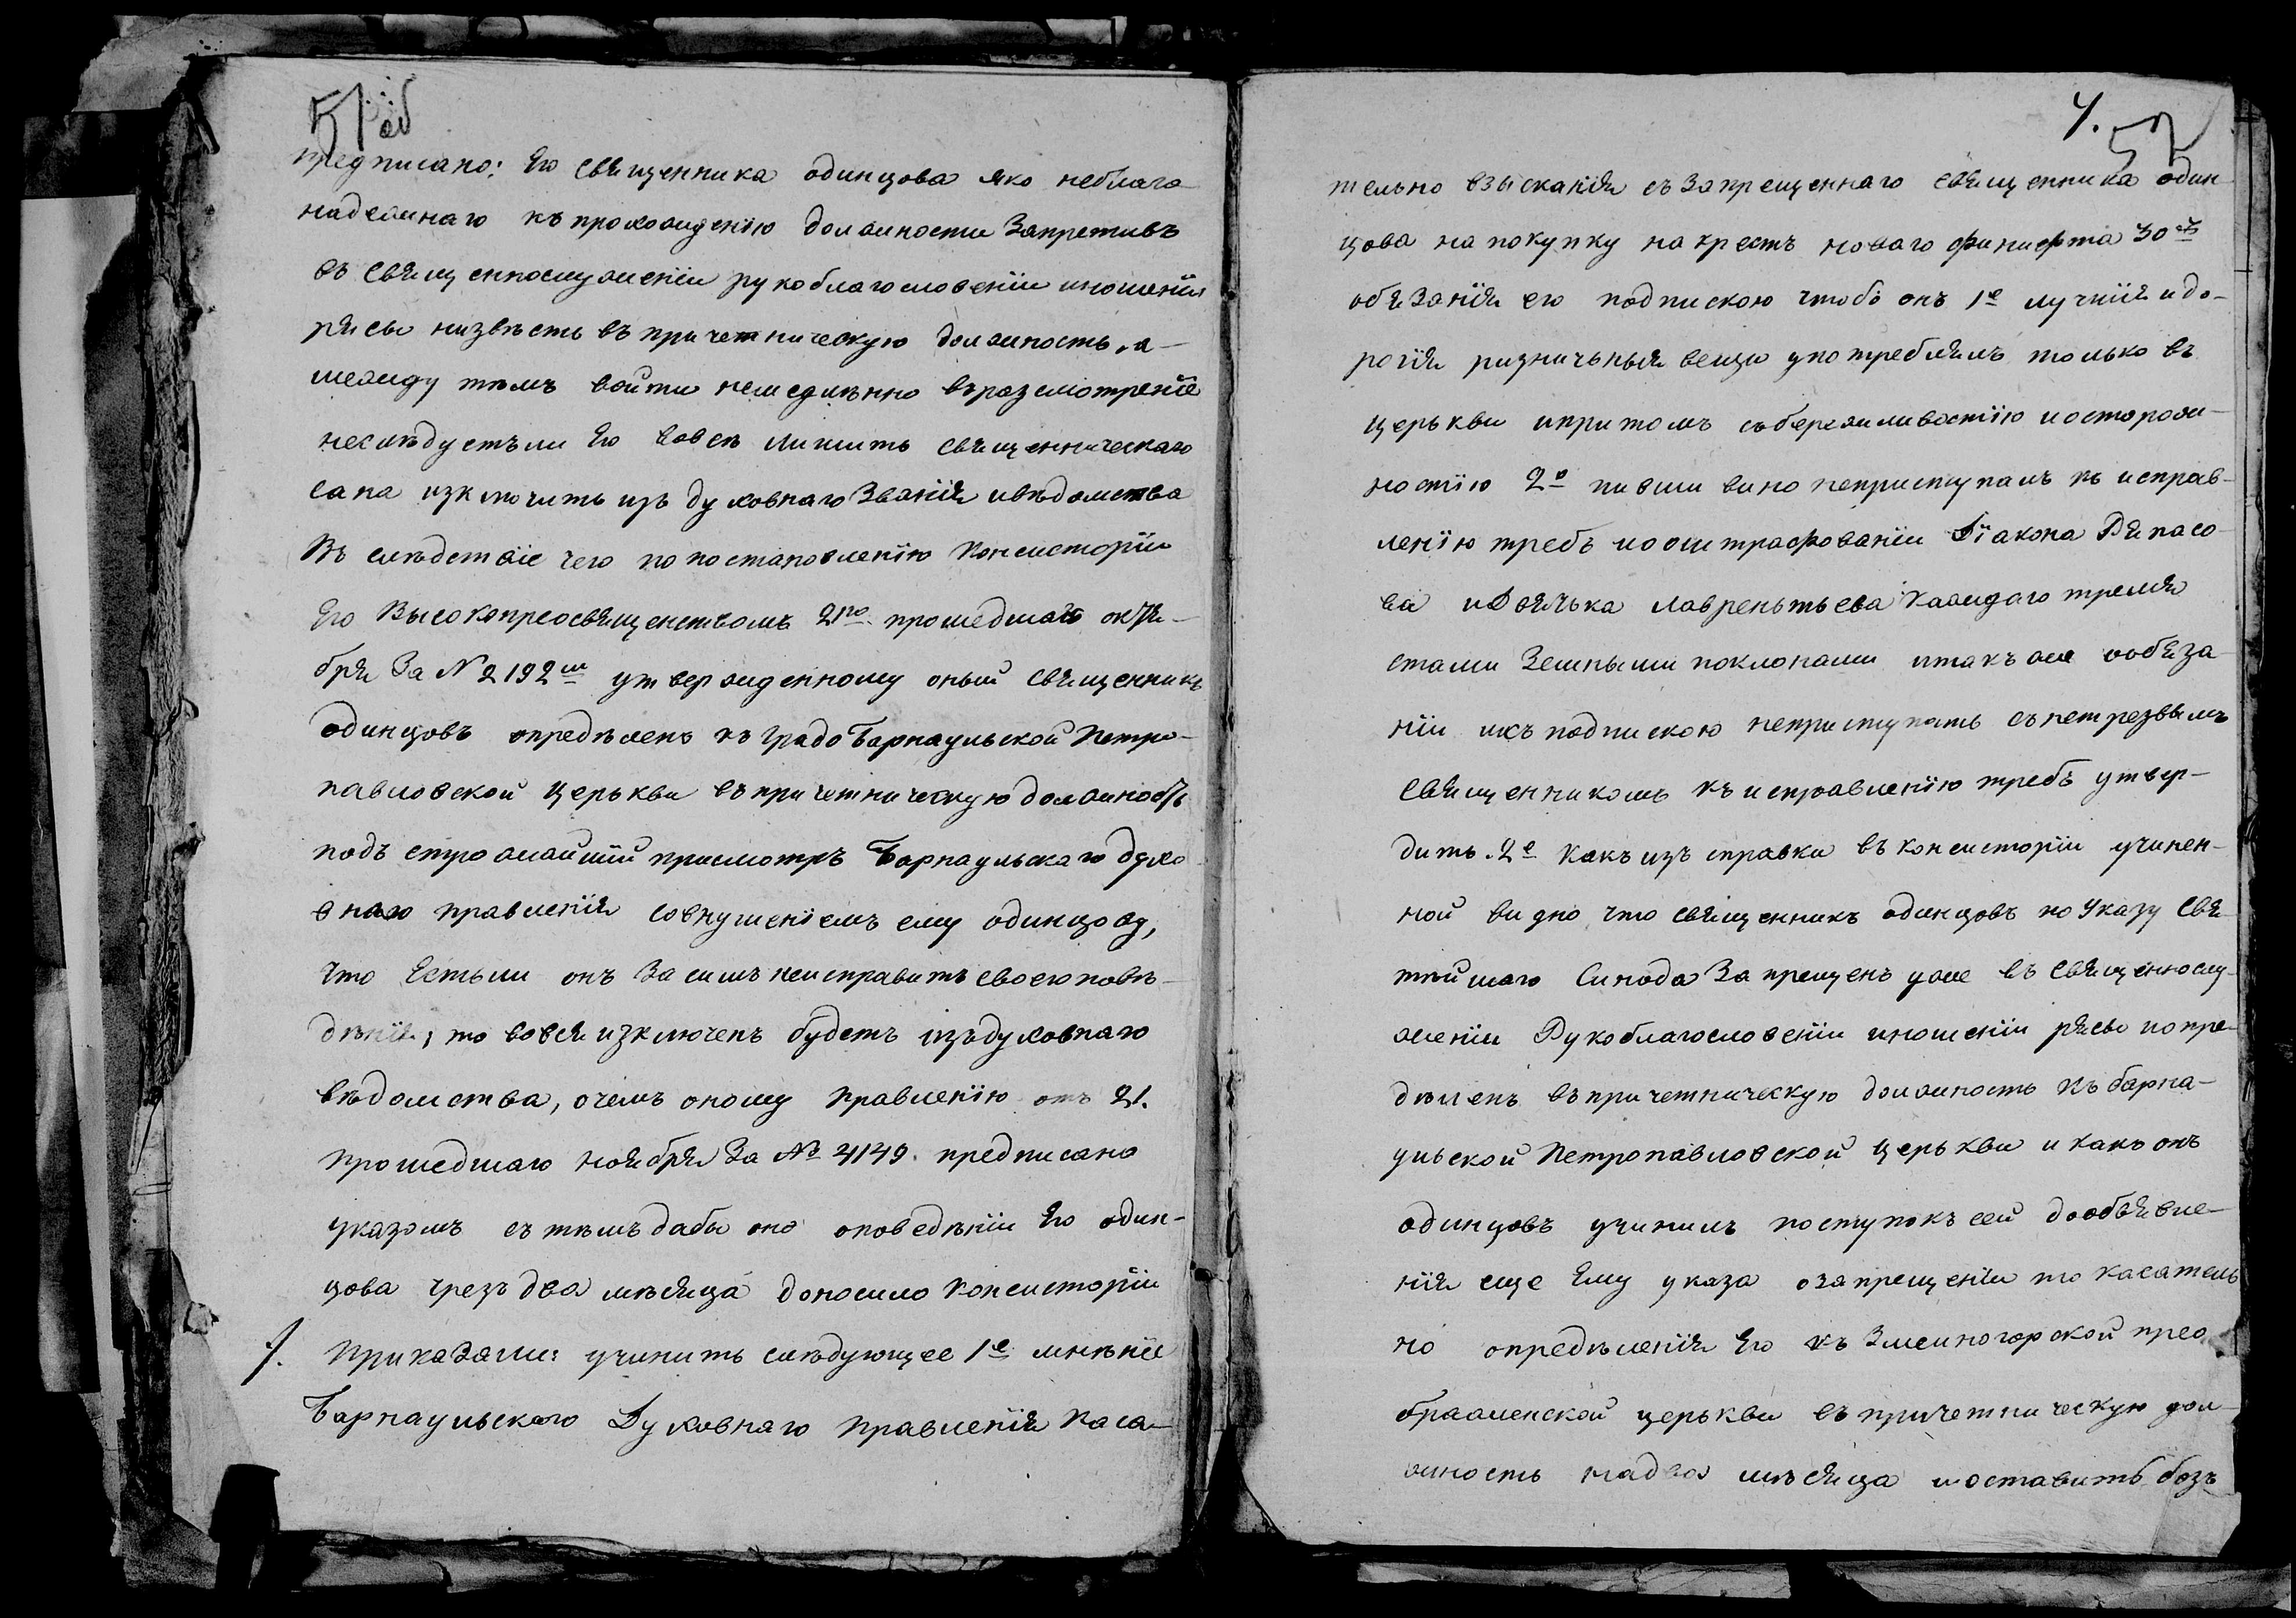 51 об
предписано: Его священника одинцова яко неблаго
надежнаго къ прохожденію должности Запретивъ
въ священнослуженіи рукоблагословеніи иношенія
рясы низвѣсть въ причетническую должность, а
между тѣмъ войти немедлѣнно въ разсмотреніе
неслѣдуетъли Его вовсе лишить священническаго
сана изключить изъ духовнаго Званія ивѣдомства
Въ слѣдствіе чего по постановленію Консисторіи
Его Высокопреосвященствомъ 21го прошедшаго октя-
бря За № 2192м утвержденному оный священникъ
одинцовъ опредѣленъ къ градо Барнаульской Петро-
павловской церькви въ причетническую должность
подъ строжайшій присмотръ Барнаульскаго духо
внаго правленія совнушеніемъ ему одинцову,
что Естьли онъ За симъ неисправитъ своего повѣ-
дѣнія; то вовся изключенъ будетъ изъ духовнаго
вѣдомства, очемъ оному правленію отъ 21.
прошедшаго ноября За № 4149. предписано
указомъ съ тѣмъ дабы оно оповедѣніи Его один-
цова чрезъ два мѣсяца доносило Консисторіи
Приказали: учинить слѣдующее 1е мнѣніе
Барнаульскаго Духовнаго правленія каса-
52
тельно взысканія съ Запрещеннаго священника один
цова на покупку на крестъ новаго финифта 30
обязанія его подпискою чтобъ онъ 1е лучшія идо-
рогія ризничьныя вещи употреблялъ только въ
церькви ипритомъ съ бережливостію иосторож-
ностію 2е пивши вино неприступалъ къ исправ-
ленію требъ иоштрафованіи Діакона Ряпасо-
ва иДьячька лавреньтьева каждаго тремя
стами Земными поклонами итакъ же иобяза-
ніи ихъ подпискою неприступать съ нетрезвымъ
священникомъ къ исправленію требъ утвер-
дить. 2е Какъ изъ справки въ консисторіи учинен-
ной видно что священникъ одинцовъ по Указу Свя
тѣйшаго Синода Запрещенъ уже въ священнослу-
женіи Рукоблагословеніи иношеніи рясы иопре-
дѣленъ въ причетническую должность Къ барна-
ульской Петропавловской церькви и какъ онъ
одинцовъ учинилъ поступокъ сей дообъявле-
нія еще Ему указа озапрещеніи то касатель
но опредѣленія Его къ Змеиногорской прео
браженской церькви въ причетническую дол-
жность надва мѣсяца и оставить безъ